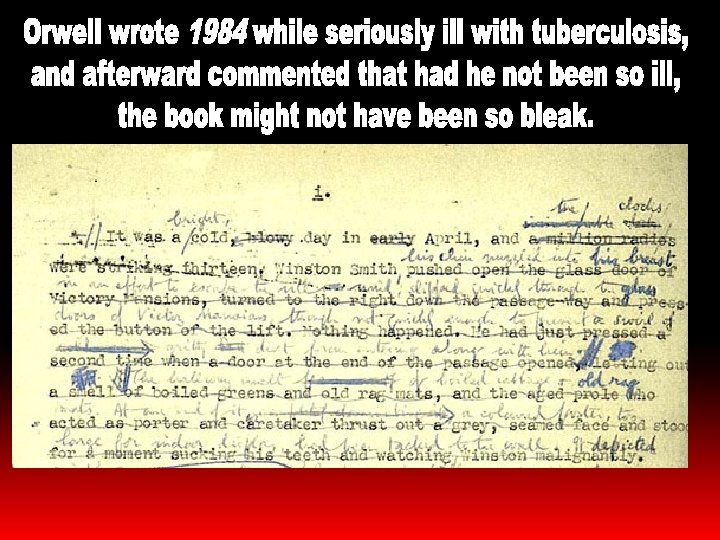 Orwell wrote 1984 while seriously ill with tuberculosis,
and afterward commented that had he not been so ill,
the book might not have been so bleak.
i.
bright, the clocks
It was a cold, blowy day in early April, and a million radios
his chin nuzzled into his breast
were striking thirteen. Winston Smith pushed open the glass door of
in an effort to escape the wind, slipped quickly through the glass
Victory Mansions, turned to the right down the passage-way and press-
doors of Victory Mansions, though not quickly enough to prevent a swirl of
ed the button of the lift. Nothing happened. He had just pressed a
gritty dust from entering along with him.
second time when a door at the end of the passage opened, letting out
The hallway smelt of boiled cabbage & old rag
a smell of boiled greens and old rag mats, and the aged prole who
mats. At one end of it a coloured poster, too
acted as porter and caretaker thrust out a grey, seamed face and stood
large for indoor display, had been tacked to the wall. It depicted
for a moment sucking his teeth and watching Winston malignantly.